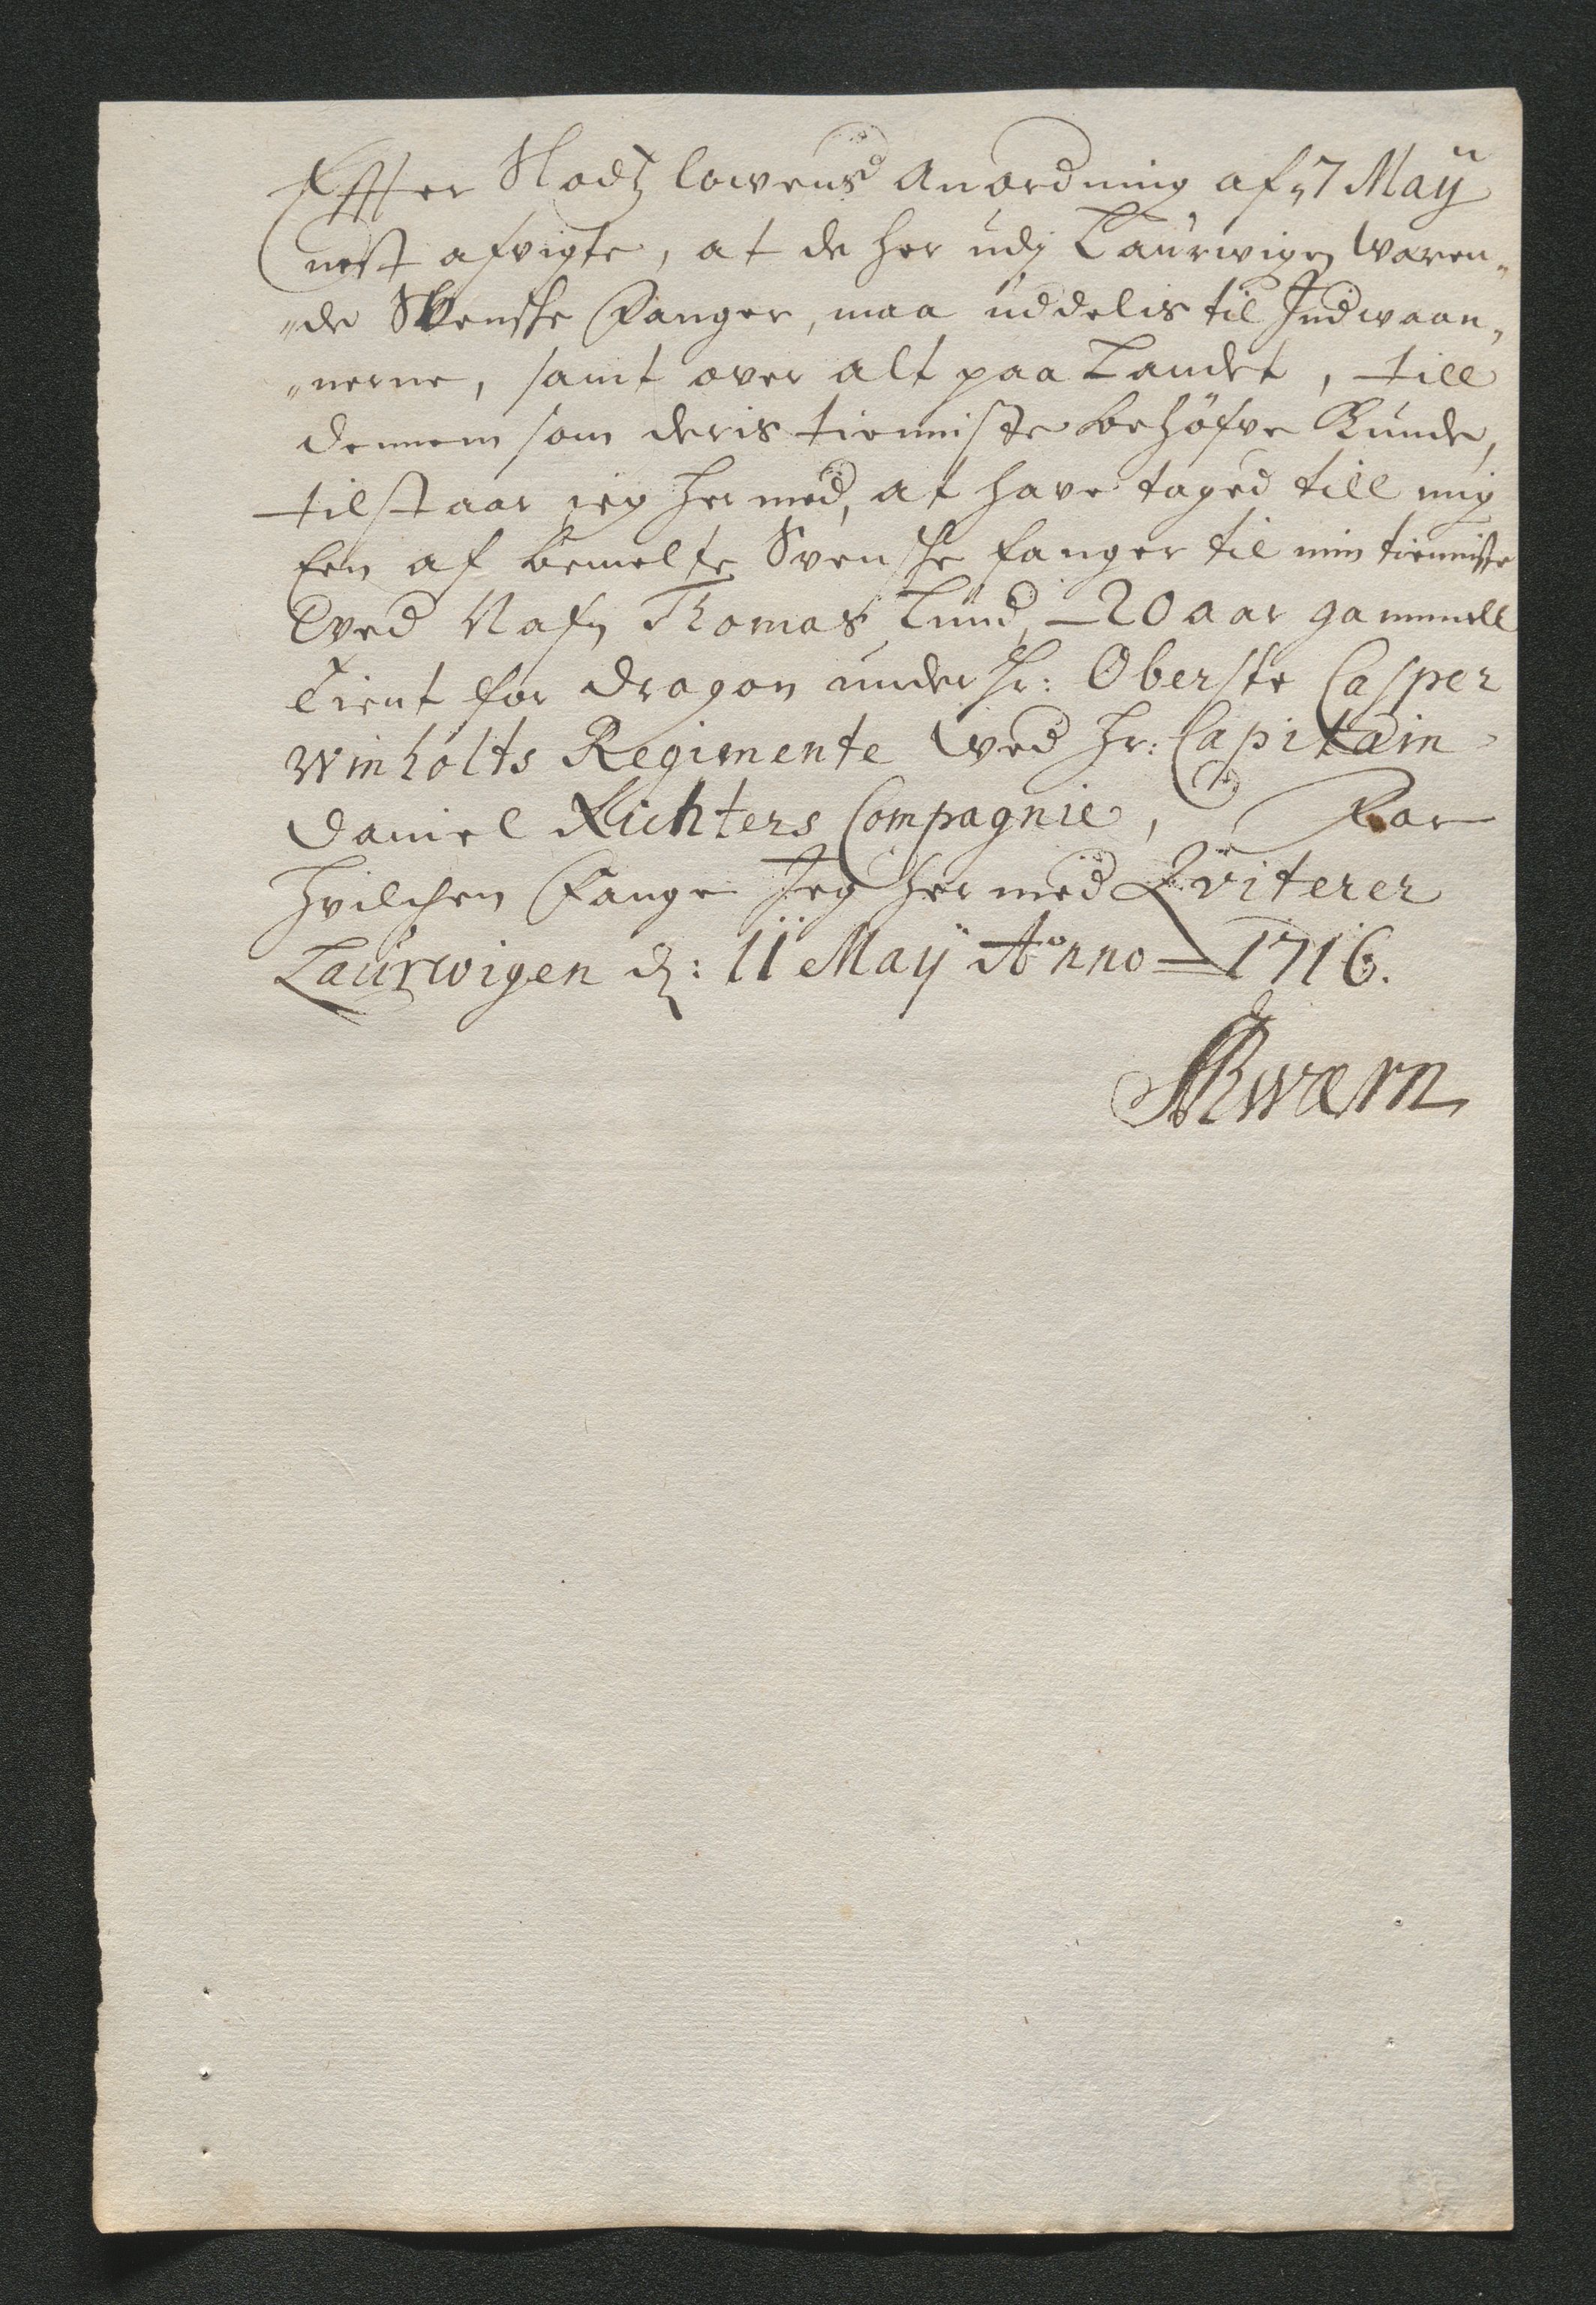 Effter Slodtz lowens Anordning af 7 Maÿ
nest afvigte, at de her udj Laurwigen waren„
„de Svenske Fanger, maa uddelis til Indwaan„
„nerne, samt over alt paa Landet, till
dennem som deris tienniste behöfve Kunde,
tilstaar ieg hermed, at have taged till mig
Een af bemelte Svenske fanger til min tienniste
Ved Nafn Thomas Lund, 20 aar gammell
Tient for Dragon under Hr: Oberste Casper
Winholts Regimente Wed Hr: Capitain
Daniel Richters Compagnie, For
hvilchen Fange Jeg hermed Qviterer
Laurwigen d: 11 Maÿ Anno 1716.